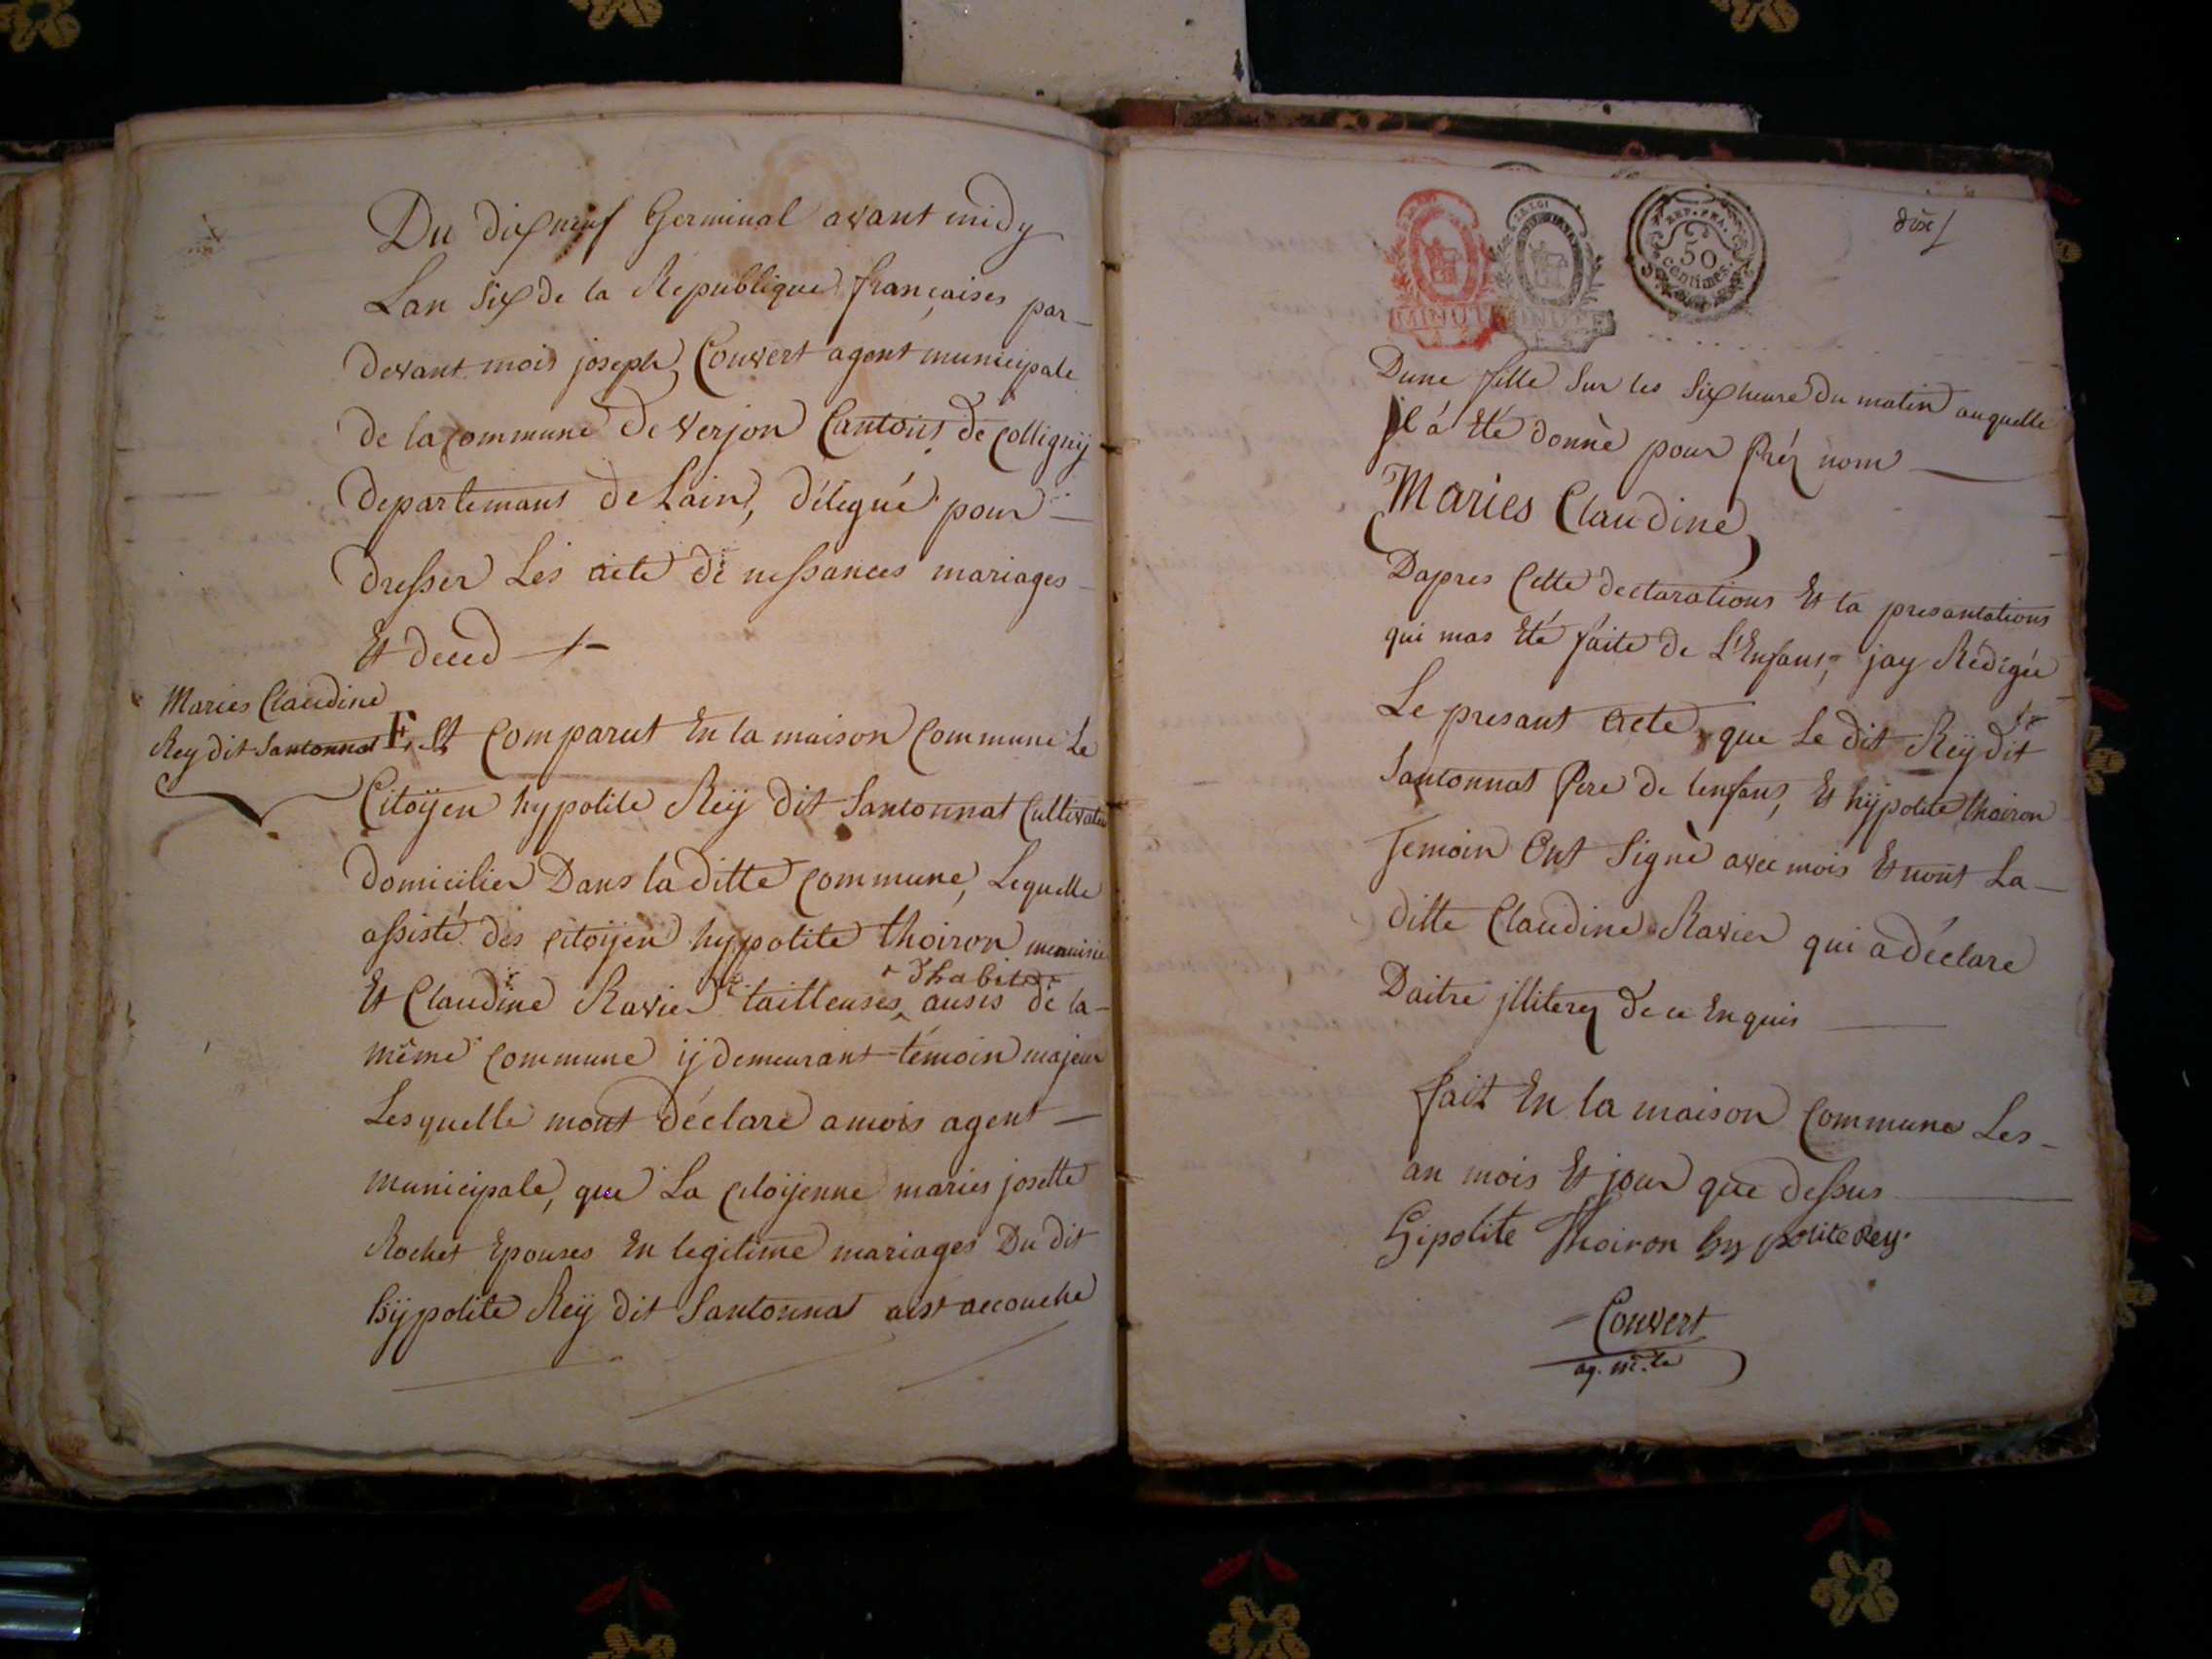 Du dix neuf Germinal avant midy
Lan Six de la Republique françaises par-
devant mois joseph Convert agent municipale
de la commune de verjon Cantons de Collignÿ
departemans de Lain, délegué pour
dresser Les acte de nessances mariages
Et deced
Maries Claudine
Rey dit Santonnat
Est Comparut En la maison Commune Le
Citoÿen hypolite Reÿ dit Santonnat Cultivateu
domicilier Dans la ditte Commune, Lequelle
assisté des citoÿen hyppolite thoiron menuisie
d'habitde
Et Claudine Ravier tailleuses auses de la-
même Commune ÿ demeurant témoin majeur
Lesquelle mont déclaré a mois agent
municipale, que La Citoÿenne maries josette
Rochet Epouses En legitime mariages Du dit
hÿpolite Reÿ dit Santonnat aest accouche
REP. FRA.
50
centimes.
dix
Dune fille Sur les Six heure du matin auquelle
jl á Eté donnè pour Préz nom
Maries Claudine
Dapres Cette declarations Et la presantations
qui mas Eté faite de L'Enfans, jay Rédigée
Le presant acte, que Le dit Reÿ dit
Santonnat Pere de lenfans, Et hÿpolite thoiron
Temoin Ont Signè avec mois Et nont La-
ditte Claudine Ravier qui a déclare
Daitre jlliterez de ce Enquis
fait En la maison Commune Les-
an mois Et jour que dessus
Gipolite Thoiron hypolite Rey.
Convert
ag. m. le